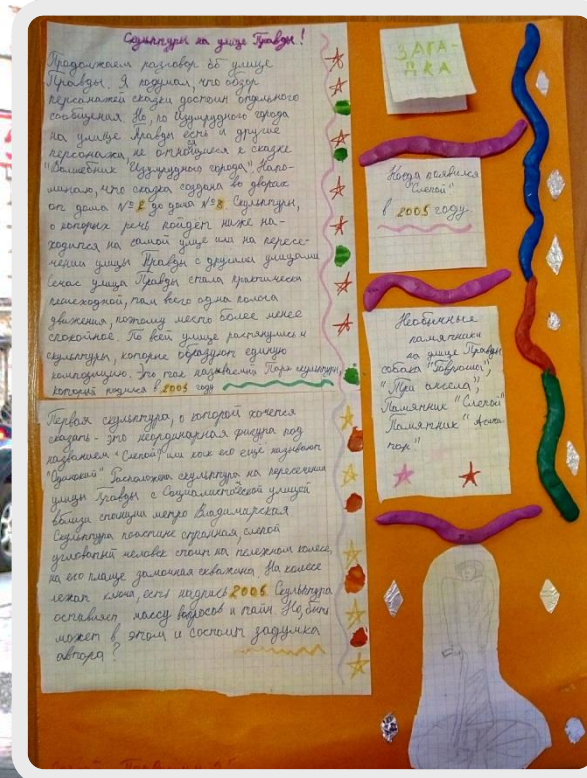 Скульптуры на улице Правды!
Продолжаем разговор об улице
Правды. Я подумал, что обзор
персонажей сказки достоин отдельного
сообщения. Но, по Изумрудного города
на улице Правды есть и другие
персонажи, не относящиеся к сказке
"Волшебник Изумрудного города". Напо-
минаю, что сказка создана во дворах
от дома № 2 до дома № 8. Скульптуры,
о которых речь пойдёт ниже на-
ходится на самой улице или на пересе-
чении улицы Правды с другими улицами
Сейчас улица Правды стала практически
пешеходной, там всего одна полоса
движения, поэтому место более менее
спокойное. По всей улице растянулись и
скульптуры, которые образуют единую
композицию. Это так называемый Парк скульптур,
который родился в 2005 году
Первая скульптура, о которой хочется
сказать - это неординарная фигура под
названием "Слепой" или как его еще называют
"Одинокий" Расположена скульптура на пересечении
улицы Правды с Социалистической улицей
вблизи станции метро Владимирская
Скульптура поистине странная, слепой
угловатый человек стоит на тележном колесе,
на его плаще замочная скважина. На колесе
лежат ключи, есть надпись 2005. Скульптура
оставляет массу вопросов и тайн. Но, быть
может в этом и состоит задумка
автора?
ЗАГА-
ДКА
Когда появился
"Слепой"
в 2005 году
Необычные
памятники
на улице Правды
собака "Гаврюша",
"Три ангела",
Памятник "Слепой"
Памятник